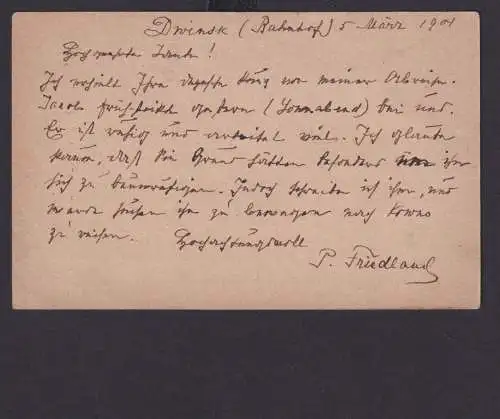 Dwinsk (Bahnhof) 5 März 1901
Hochgeehrte Tante!
Ich erhielt Ihre Karte vor meiner Abreise.
Jacob frühstückt gestern (Sonnabend) bei uns.
Er ist ruhig und arbeitet viel. Ich glaube
kaum, daß Sie Grund hätten besonders um ihn
sich zu beunruhigen. Jedoch schreibe ich ihm, und
werde suchen ihn zu bewegen nach Kowno
zu reisen. Hochachtungsvoll
P. Friedland